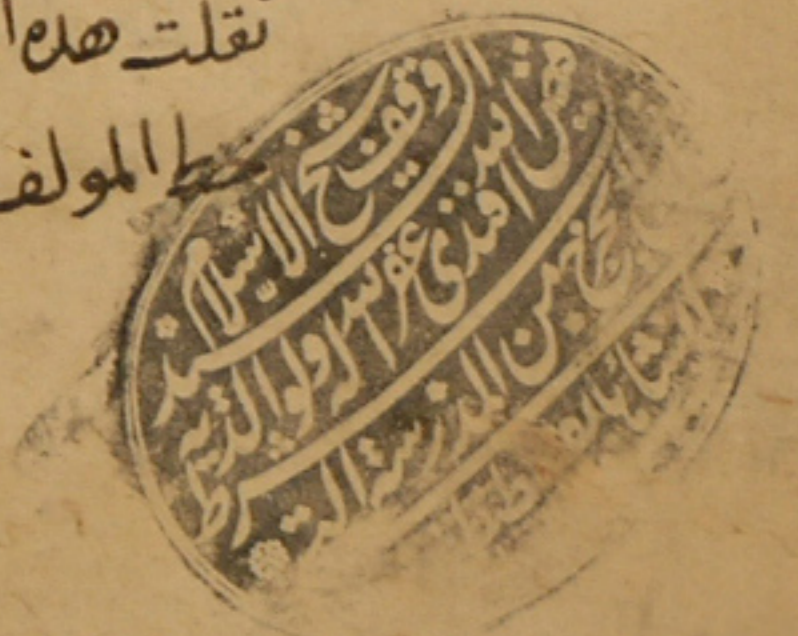 نقلت هذه ا
خط المولف
وقف شيخ الاسلام السيد
فيض الله افندي غفر الله له ولوالديه
بشرط ان لا يخرج من المدرسة التي
انشاها